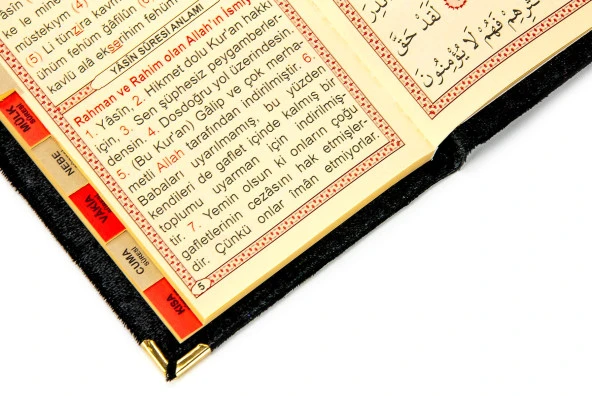 müstekıym (4)
(5) Li tünzira kavm
ühüm fehüm ğâfilûn (6)
kavlü alâ ekserihim fehüm
YÂSİN SÛRESİ ANLAMI
Rahman ve Rahim olan Allah'ın İsmiy
1. Yâsîn. 2. Hikmet dolu Kur'an hakkı
için, 3. Sen şüphesiz peygamberler-
densin. 4. Dosdoğru yol üzerindesin.
5. (Bu Kur'an) Gâlip ve çok merha-
metli Allah tarafından indirilmiştir. 6.
Babaları uyarılmamış, bu yüzden
kendileri de gaflet içinde kalmış bir
toplumu uyarman için indirilmiş-
tir. 7. Yemin olsun ki onların çoğu
gafletlerinin cezâsını hak etmişler-
dir. Çünkü onlar îmân etmiyorlar.
5
MÜLK
SÛRESİ
NEBE
VÂKIA
CUMA
SÛRESİ
KISA
لَقَدْ حَقَّ
فَهُمْ لَا يُؤْمِنُونَ